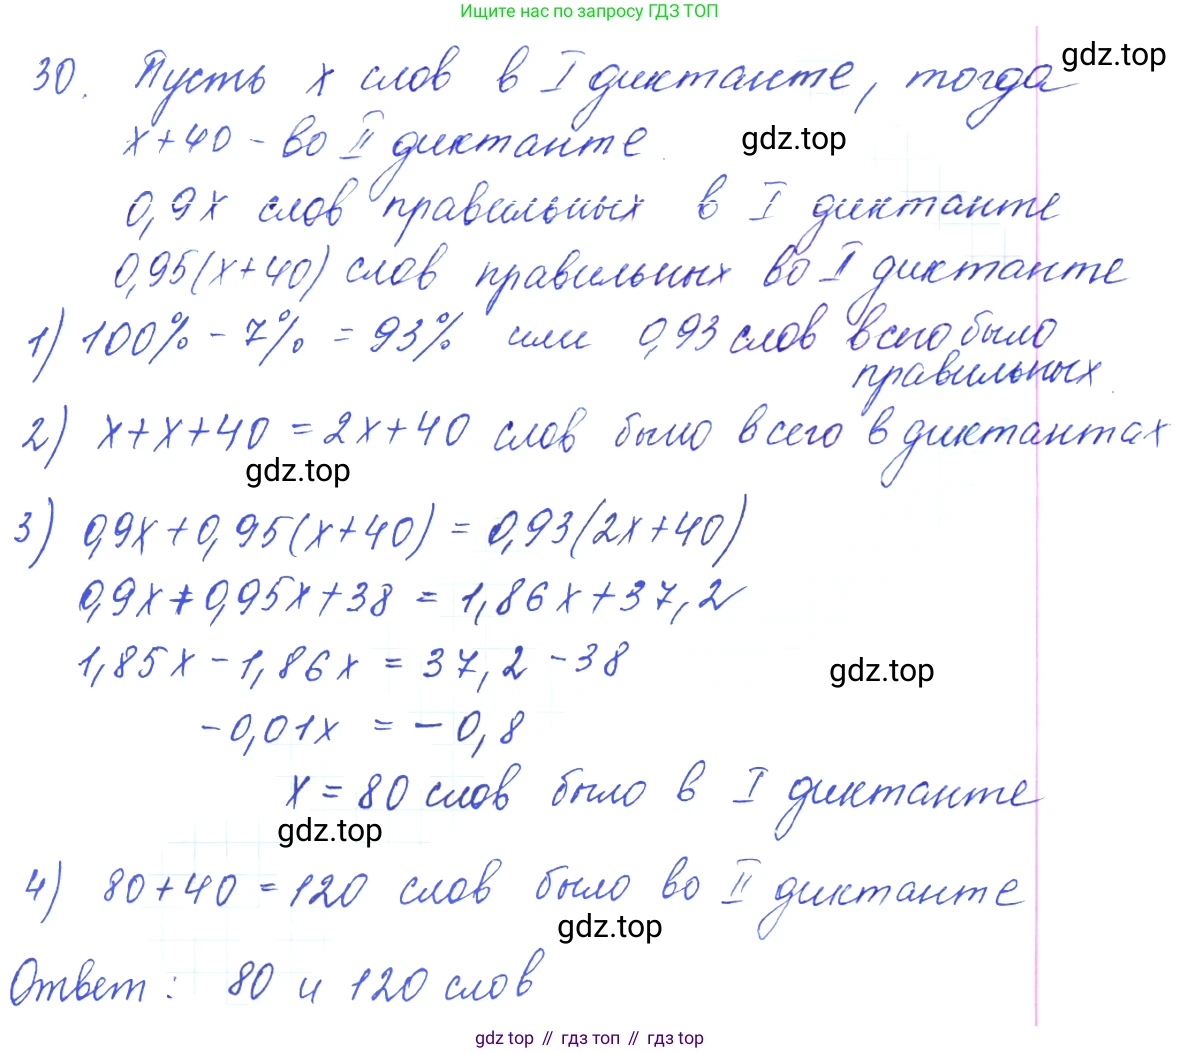 Ищите нас по запросу ГДЗ ТОП
30. Пусть x слов в I диктанте, тогда
gdz.top
x+40 - во II диктанте
gdz.top
0,9x слов правильных в I диктанте
0,95(x+40) слов правильных во II диктанте
1) 100% - 7% = 93% или 0,93 слов всего было
правильных
2) x+x+40 = 2x+40 слов было всего в диктантах
gdz.top
3) 0,9x+0,95(x+40) = 0,93(2x+40)
0,9x+0,95x+38 = 1,86x+37,2
1,85x-1,86x = 37,2-38
gdz.top
-0,01x = -0,8
x = 80 слов было в I диктанте
gdz.top
4) 80+40=120 слов было во II диктанте
gdz.top
Ответ: 80 и 120 слов
gdz top // гдз топ // gdz top